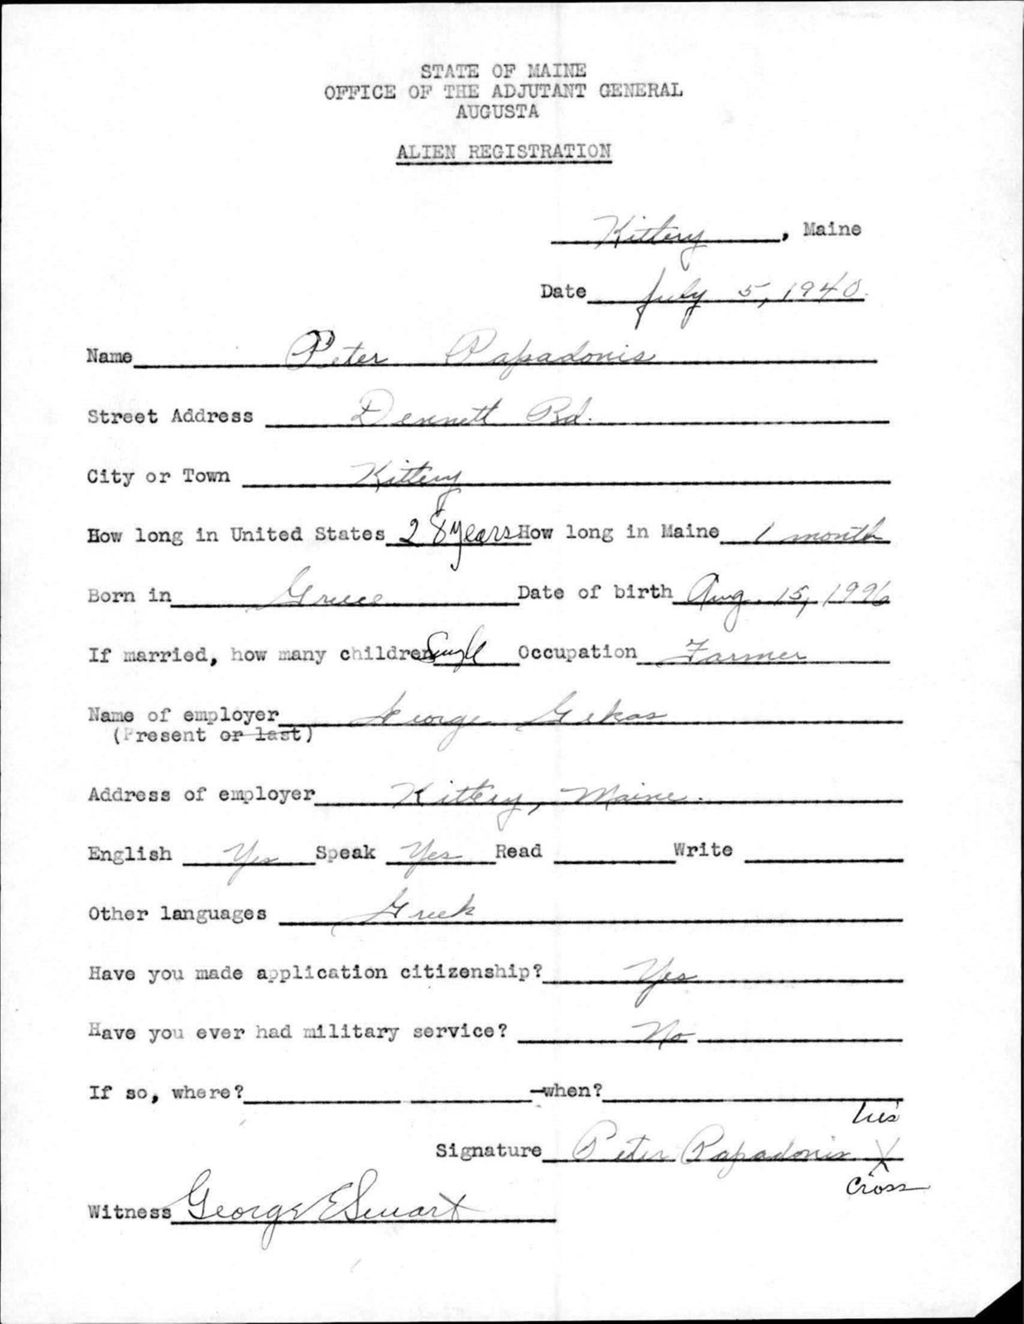 STATE OF MAINE
OFFICE OF THE ADJUTANT GENERAL
AUGUSTA
ALIEN REGISTRATION
Kittery, Maine
Date July 5, 1940.
Name Peter Papadonis
Street Address Dennett Rd.
City or Town Kittery
How long in United States 28 years How long in Maine 1 month
Born in Greece Date of birth Aug. 15, 1996
If married, how many children Single Occupation Farmer
Name of employer George Gekas
(Present or last)
Address of employer Kittery, Maine.
English Yes Speak Yes Read Write
Other languages Greek
Have you made application citizenship? Yes
Have you ever had military service? No
If so, where? when?
his
Signature Peter Papadonis X
Cross
Witness George E Stuart